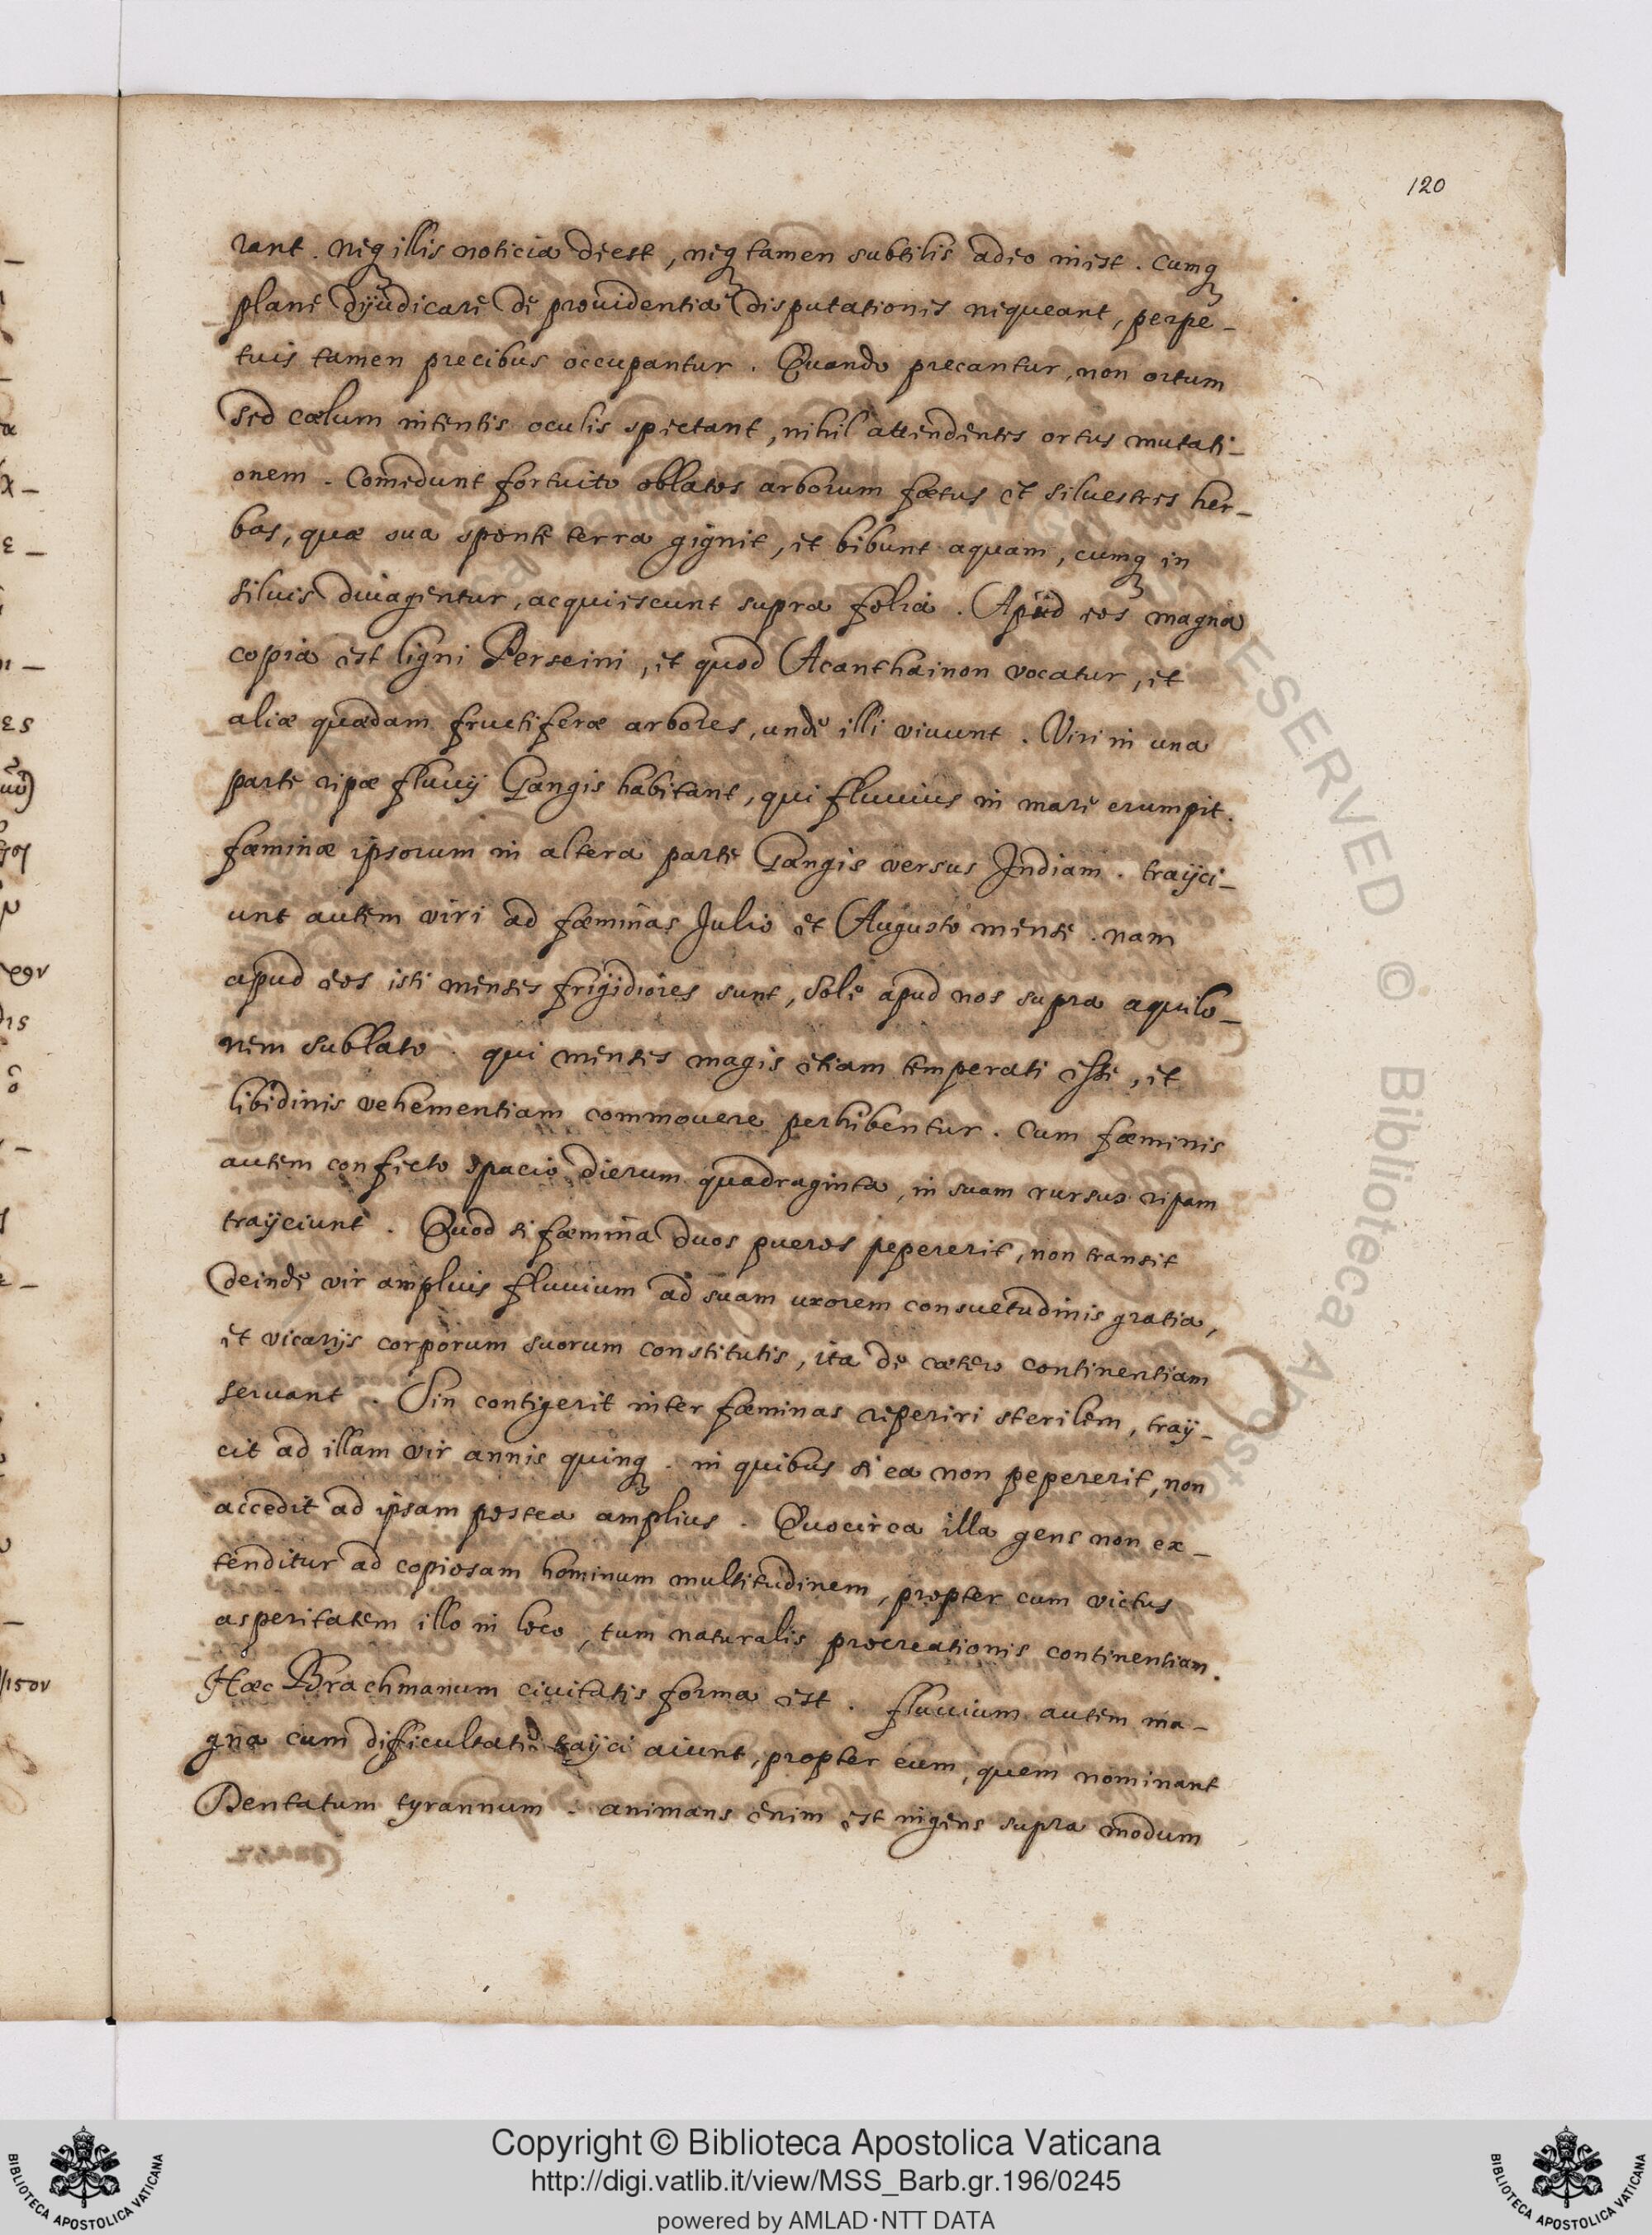 120
rant. neq illis noticia deest, neq tamen subtilis adeo inest. cumq
plane dijudicare de prouidentiae disputationis nequeant, perpe-
tuis tamen precibus occupantur. Quando precantur, non ortum
sed cœlum intentis oculis spectant, nihil attendentes ortus mutati-
onem. Comedunt fortuito oblatos arborum fœtus et siluestres her-
bas, quæ sua sponte terra gignit, et bibunt aquam, cumq in
siluis diuagentur, acquiescunt supra folia. Apud eos magna
copia est ligni Perseini, et quod Acanthainon vocatur, et
aliæ quædam fructiferæ arbores, unde illi viuunt. Viri in una
parte ripæ fluuij Gangis habitant, qui fluuius in mare erumpit.
fæminæ ipsorum in altera parte Gangis versus Indiam. traijci-
unt autem viri ad fæminas Julio et Augusto mense. nam
apud eos isti menses frigidiores sunt, Sole apud nos supra aquilo-
nem sublato. qui menses magis etiam temperati esse, et
libidinis vehementiam commouere perhibentur. Cum fæminis
autem confecto spacio dierum quadraginta, in suam rursus ripam
traijciunt. Quod si fæmina duos pueros pepererit, non transit
deinde vir amplius fluuium ad suam uxorem consuetudinis gratia,
et vicarijs corporum suorum constitutis, ita de cætero continentiam
seruant. Sin contigerit inter fæminas reperiri sterilem, traij-
cit ad illam vir annis quinq. in quibus si ea non pepererit, non
accedit ad ipsam postea amplius. Quocirca illa gens non ex-
tenditur ad copiosam hominum multitudinem, propter cum victus
asperitatem illo in loco, tum naturalis procreationis continentiam.
Hæc Brachmanum ciuitatis forma est. fluuium autem ma-
gna cum difficultate traijci aiunt, propter eum, quem nominant
Dentatum tyrannum. animans enim est ingens supra modum
ESERVED © Biblioteca Apostolic
Copyright © Biblioteca Apostolica Vaticana
http://digi.vatlib.it/view/MSS_Barb.gr.196/0245
powered by AMLAD·NTT DATA
BIBLIOTECA APOSTOLICA VATICANA
BIBLIOTECA APOSTOLICA VATICANA